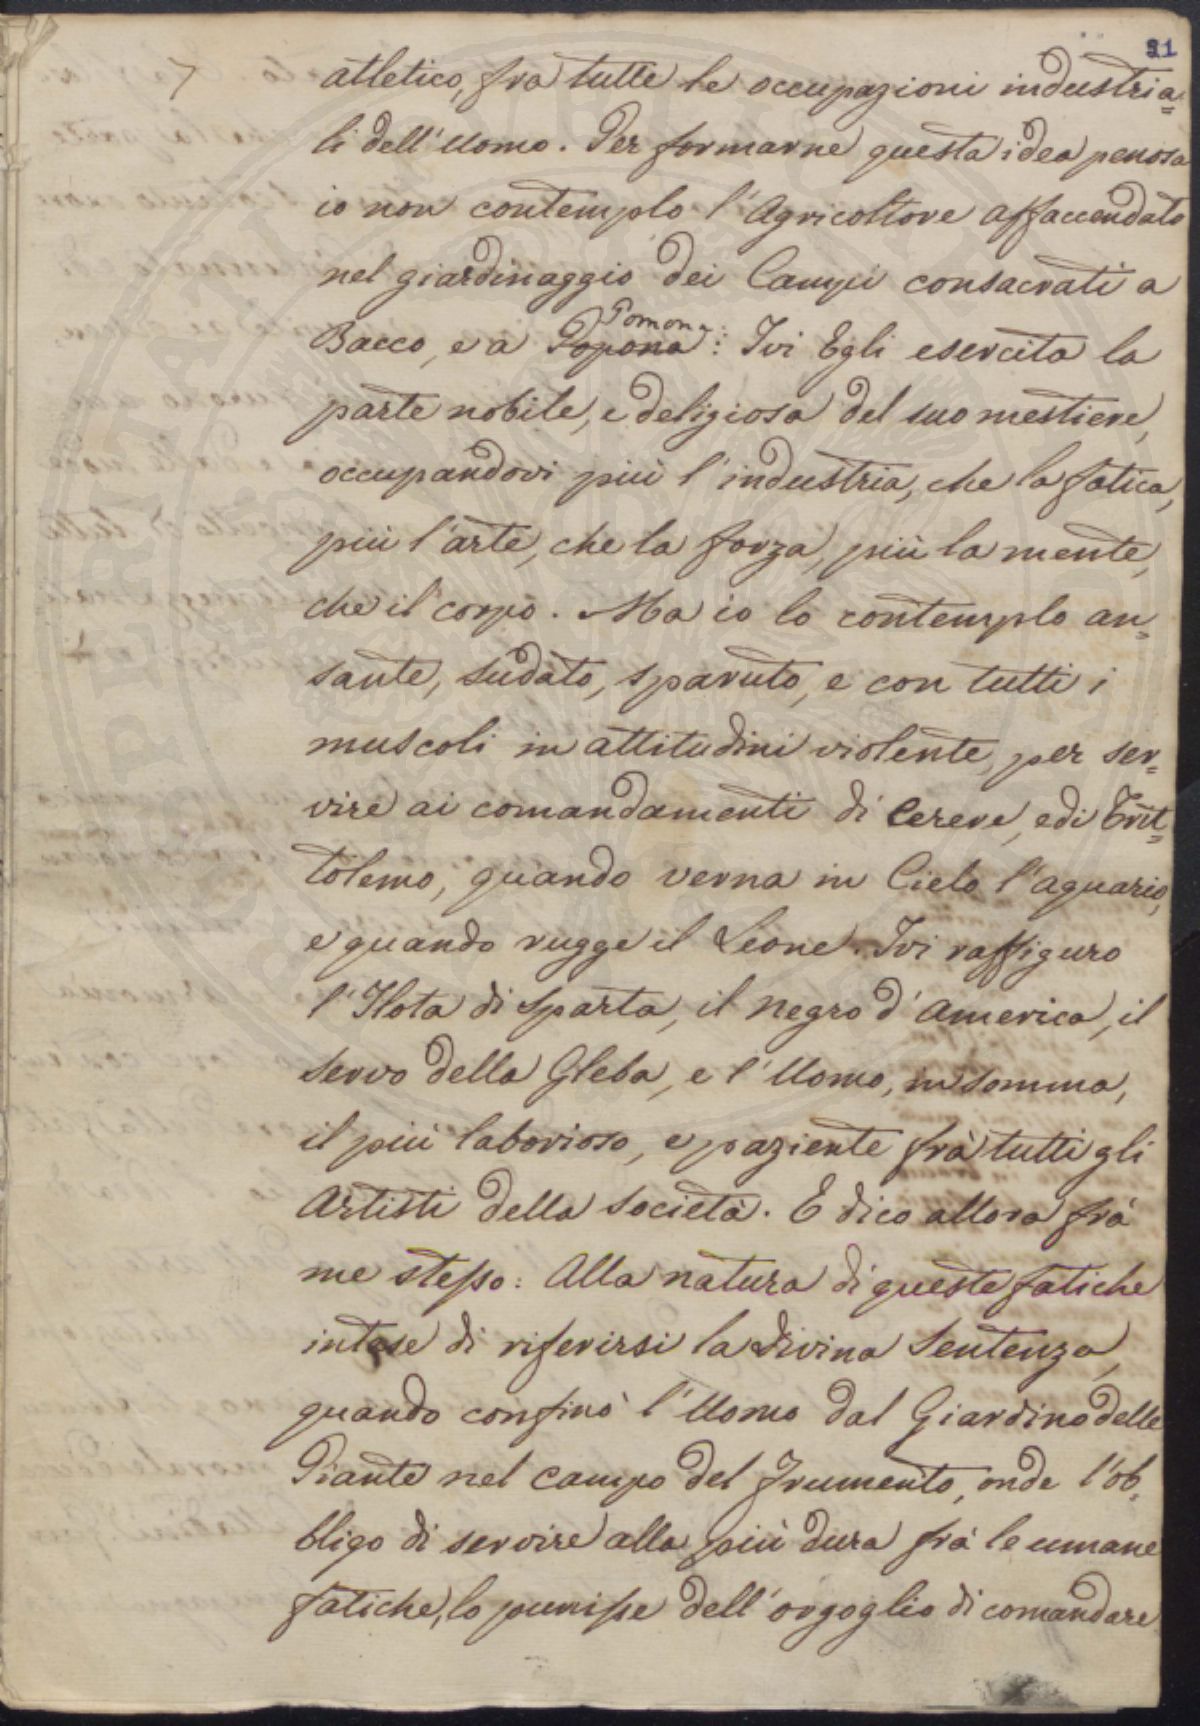 31
7
atletico, fra tutte le occupazioni industria=
li dell'Uomo. Per formarne questa idea penosa
io non contemplo l'Agricoltore affaccendato
nel giardinaggio dei Campi consacrati a
Pomona
Bacco, e a Popona: Ivi Egli esercita la
parte nobile, e deligiosa del suo mestiere,
occupandovi più l'industria, che la fatica,
più l'arte, che la forza, più la mente,
che il corpo. Ma io lo contemplo an=
sante, sudato, sparuto, e con tutti i
muscoli in attitudini violente, per ser=
vire ai comandamenti di Cerere, e di Trit=
tolemo, quando verna in Cielo l'aquario,
e quando rugge il Leone. Ivi raffiguro
l'Ilota di Sparta, il Negro d'America, il
servo della Gleba, e l'Uomo, in somma,
il più laborioso, e paziente frà tutti gli
Artisti della società. E dico allora frà
me stesso: Alla natura di queste fatiche
intese di riferirsi la divina Sentenza,
quando confinò l'Uomo dal Giardino delle
Piante nel campo del Frumento, onde l'ob=
bligo di servire alla più dura frà le umane
fatiche, lo punisse dell'orgoglio di comandare